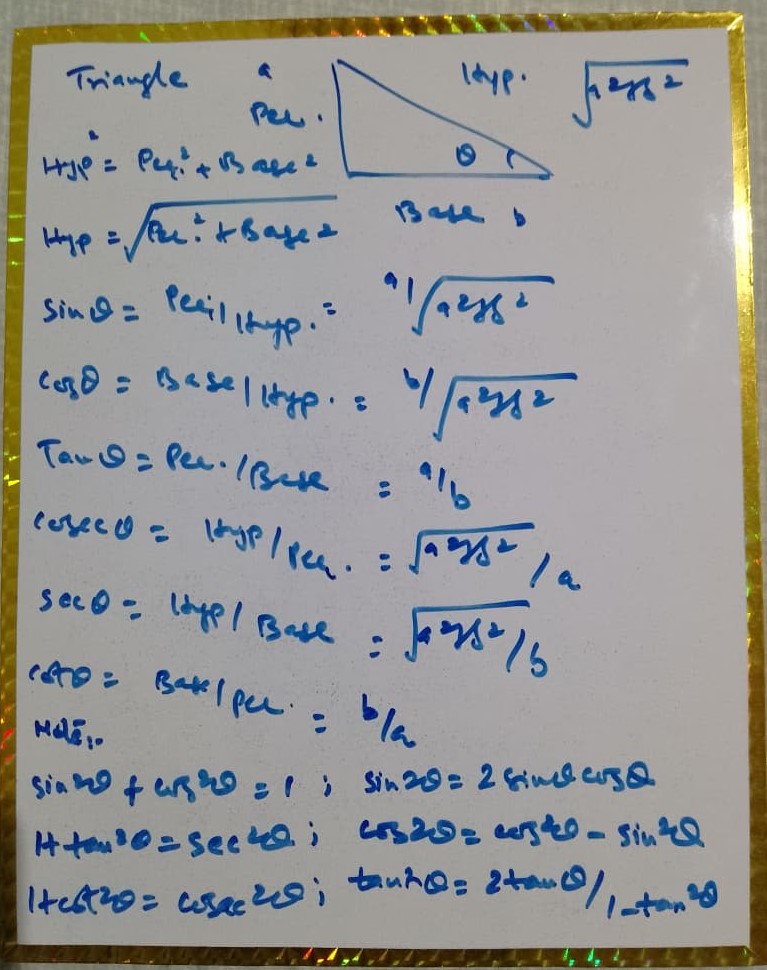 Triangle a Hyp. √a²+b²
Per.
Hyp² = Per.² + Base²
θ
Base b
Hyp = √Per.² + Base²
sinθ = Per./Hyp. = a/√a²+b²
cosθ = Base/Hyp. = b/√a²+b²
Tanθ = Per./Base = a/b
cosecθ = Hyp/Per. = √a²+b²/a
secθ = Hyp/Base = √a²+b²/b
cotθ = Base/Per. = b/a
Note:-
sin²θ + cos²θ = 1 ; sin2θ = 2 sinθ cosθ
1+tan²θ = sec²θ ; cos2θ = cos²θ - sin²θ
1+cot²θ = cosec²θ ; tan2θ = 2tanθ/1-tan²θ